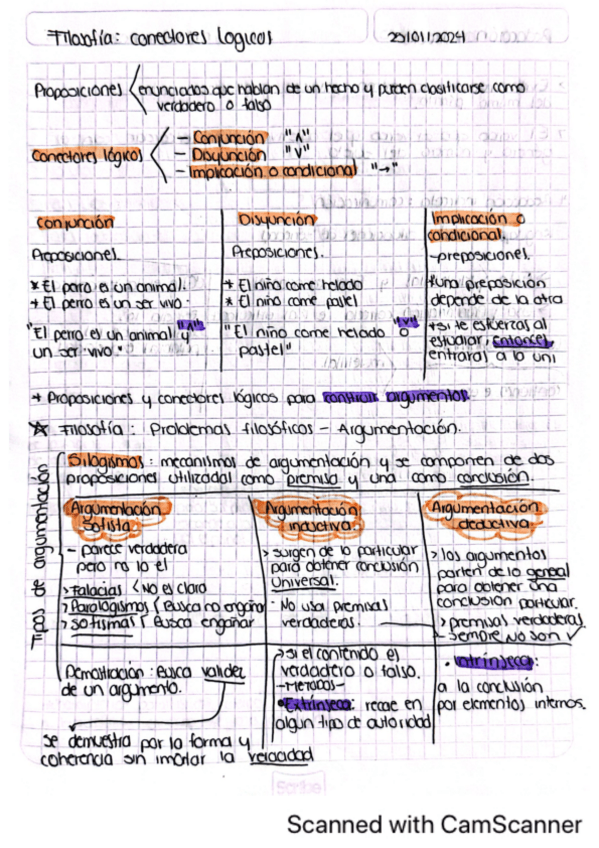 Filosofía: conectores logicos
23/01/2024
Proposiciones enunciados que hablan de un hecho y pueden clasificarse como
verdadero o falso
Conectores lógicos
- Conjunción "∧"
- Disyunción "∨"
- Implicación o condicional "→"
Conjunción
Preposiciones.
* El perro es un animal.
* El perro es un ser vivo.
"∧"
"El perro es un animal y
un ser vivo"
Disyunción
Preposiciones.
* El niño come helado
* El niño come pastel
"∨"
"El niño come helado o
pastel"
Implicación o
condicional.
-preposiciones.
*una preposición
depende de la otra
*si te esfuerzas al
estudiar, entonces,
entraras a la uni
* Proposiciones y conectores lógicos para construir argumentos.
☆ Filosofía: Problemas filosóficos - Argumentación.
Tipos de argumentación
Silogismos: mecanismos de argumentación y se componen de dos
proposiciones utilizadas como premisa y una como conclusión.
Argumentación
sofista
- parece verdadera
pero no lo es
> Falacias < No es claro
> Paralogismos { Busca no engañar
> sofismas { Busca engañar
Demostración: Busca validez
de un argumento.
se demuestra por la forma y
coherencia sin importar la veracidad
Argumentación
inductiva
> surgen de lo particular
para obtener conclusión
Universal.
· No usa premisas
verdaderas.
> si el contenido es
verdadero o falso.
-METODOS-
• Extrínseco: recae en
algún tipo de autoridad
Argumentación
deductiva
> los argumentos
parten de lo general
para obtener una
conclusión particular.
> premisas verdaderas.
- siempre NO son ✓
• Intrínseco:
a la conclusión
por elementos internos.
Scribe
Scanned with CamScanner